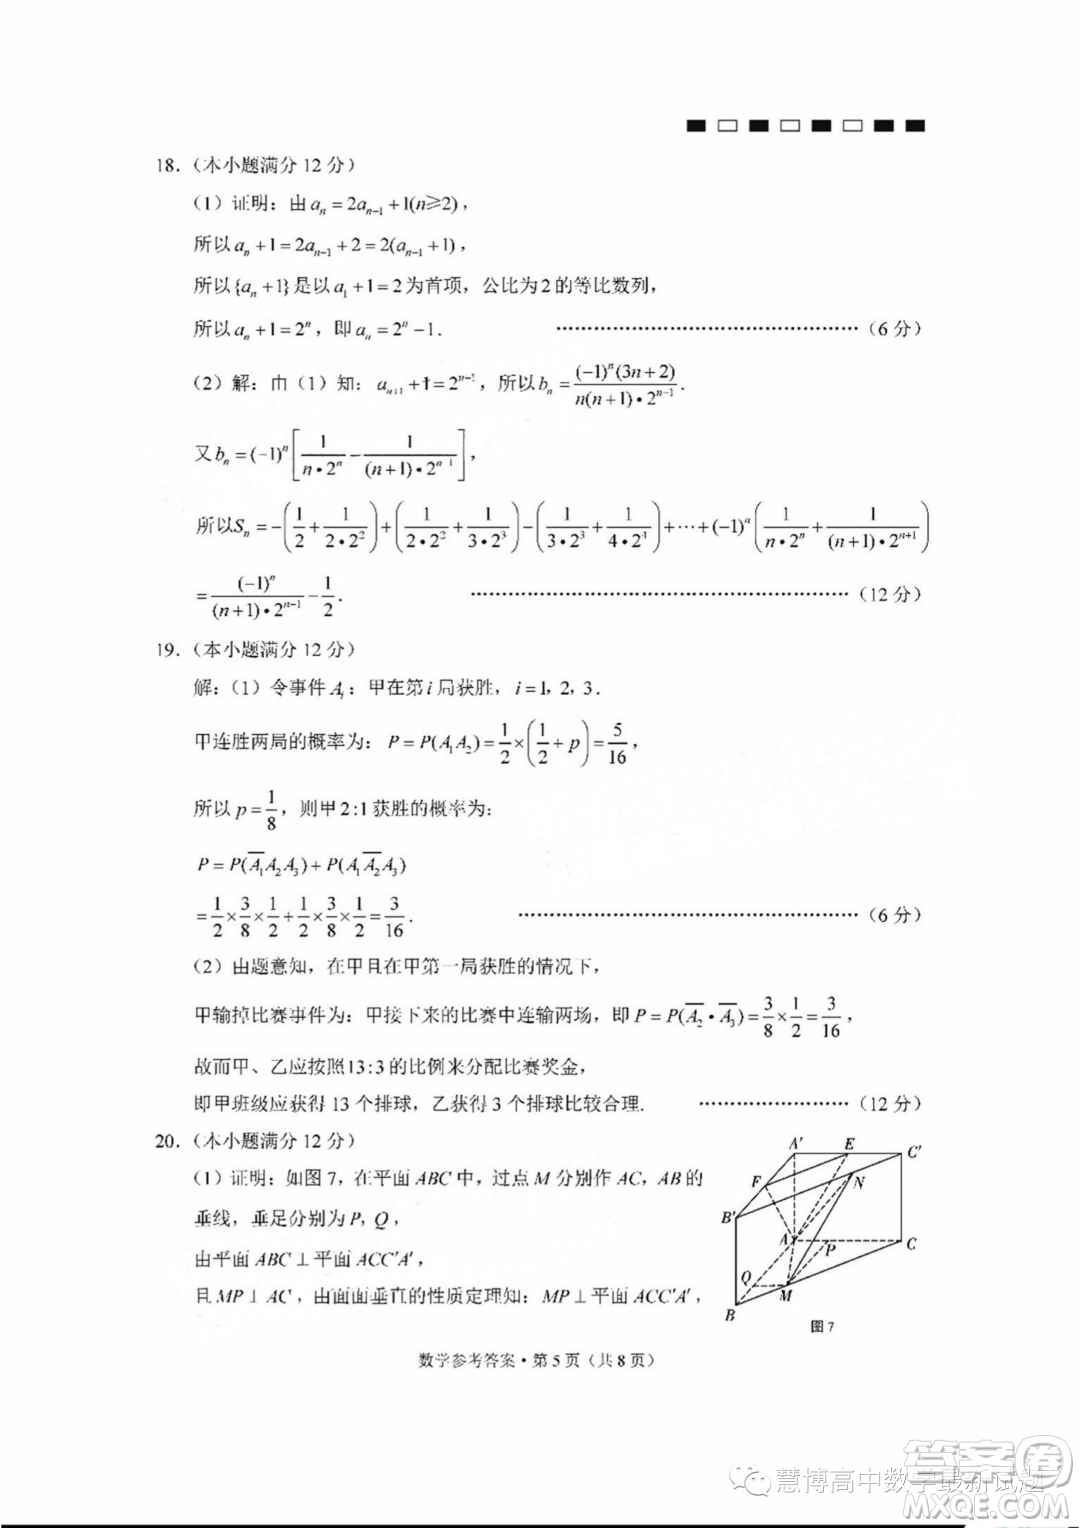 18.（本小题满分 12 分）
（1）证明：由 aₙ = 2aₙ₋₁ + 1(n≥2)，
所以 aₙ + 1 = 2aₙ₋₁ + 2 = 2(aₙ₋₁ + 1)，
所以 {aₙ + 1} 是以 a₁ + 1 = 2 为首项，公比为 2 的等比数列，
所以 aₙ + 1 = 2ⁿ，即 aₙ = 2ⁿ − 1. ……………………（6 分）
（2）解：由（1）知：aₙ₊₁ + 1 = 2ⁿ⁻¹，所以 bₙ = (−1)ⁿ(3n+2) / n(n+1)•2ⁿ⁻¹.
又 bₙ = (−1)ⁿ[1/(n•2ⁿ) − 1/((n+1)•2ⁿ⁻¹)]，
所以 Sₙ = −(1/2 + 1/(2•2²)) + (1/(2•2²) + 1/(3•2³)) − (1/(3•2³) + 1/(4•2⁴)) + ⋯ + (−1)ⁿ(1/(n•2ⁿ) + 1/((n+1)•2ⁿ⁺¹))
= (−1)ⁿ/((n+1)•2ⁿ⁻¹) − 1/2. ……………………（12 分）
19.（本小题满分 12 分）
解：（1）令事件 Aᵢ：甲在第 i 局获胜，i = 1, 2, 3.
甲连胜两局的概率为：P = P(A₁A₂) = 1/2 × (1/2 + p) = 5/16，
所以 p = 1/8，则甲 2:1 获胜的概率为：
P = P(A̅₁A₂A₃) + P(A₁A̅₂A₃)
= 1/2 × 3/8 × 1/2 + 1/2 × 3/8 × 1/2 = 3/16. ……………………（6 分）
（2）由题意知，在甲且在甲第一局获胜的情况下，
甲输掉比赛事件为：甲接下来的比赛中连输两场，即 P = P(A̅₂•A̅₃) = 3/8 × 1/2 = 3/16，
故而甲、乙应按照 13:3 的比例来分配比赛奖金，
即甲班级应获得 13 个排球，乙获得 3 个排球比较合理. ……………………（12 分）
20.（本小题满分 12 分）
（1）证明：如图 7，在平面 ABC 中，过点 M 分别作 AC，AB 的
垂线，垂足分别为 P，Q，
由平面 ABC ⊥ 平面 ACC′A′，
且 MP ⊥ AC，由面面垂直的性质定理知：MP ⊥ 平面 ACC′A′，
A′ E C′
F N
B′
A P C
Q M
B
图 7
数学参考答案·第 5 页（共 8 页）
慧博高中数学最新试题
答案圈
MXQE.COM